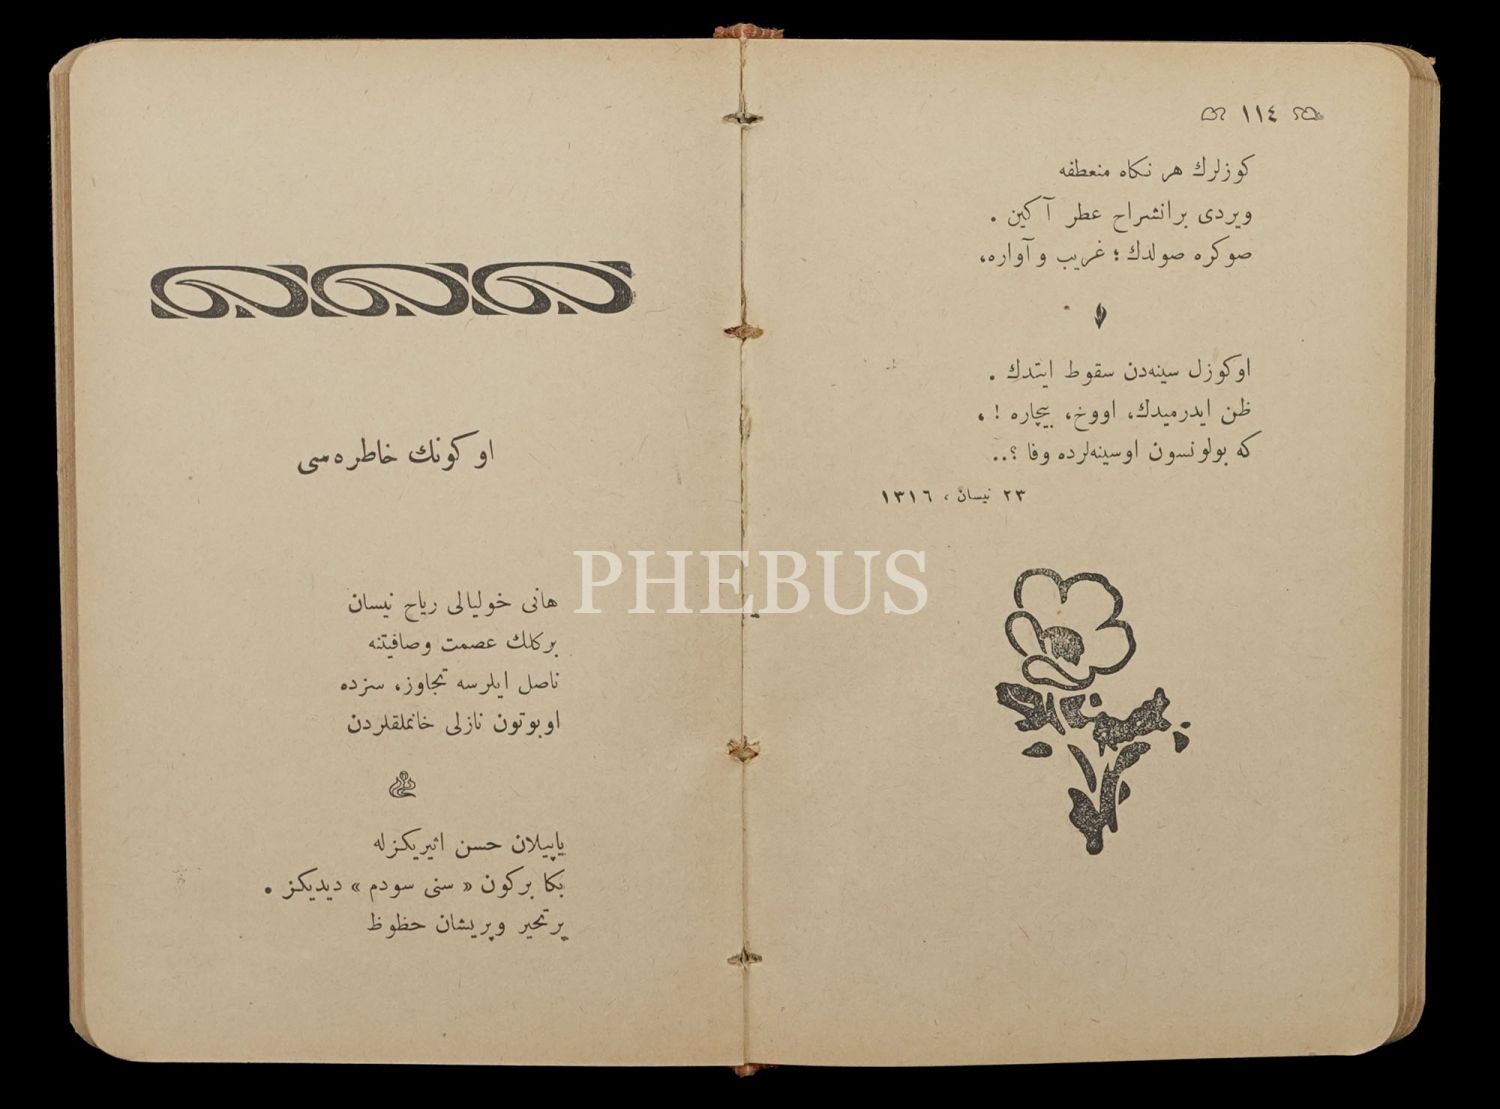 ١١٤
كوزلرك هر نكاه منعطفه
ويردى برانشراح عطر آكين .
صوكره صولدك ؛ غريب و آواره،
اوكوزل سينه‌دن سقوط ايتدك .
ظن ايدرميدك، اووخ، بيچاره ! .
كه بولونسون اوسينه‌لرده وفا ؟..
٢٣ نيسان ، ١٣١٦
او كونك خاطره‌سى
هانى خوليالى رياح نيسان
بركلك عصمت وصافيتنه
ناصل ايلرسه تجاوز، سزده
اوبوتون نازلى خانملقلردن
ياپيلان حسن اثيريكزله
بكا بركون « سنى سودم » ديديكز .
پر تحير وپريشان حظوظ
PHEBUS